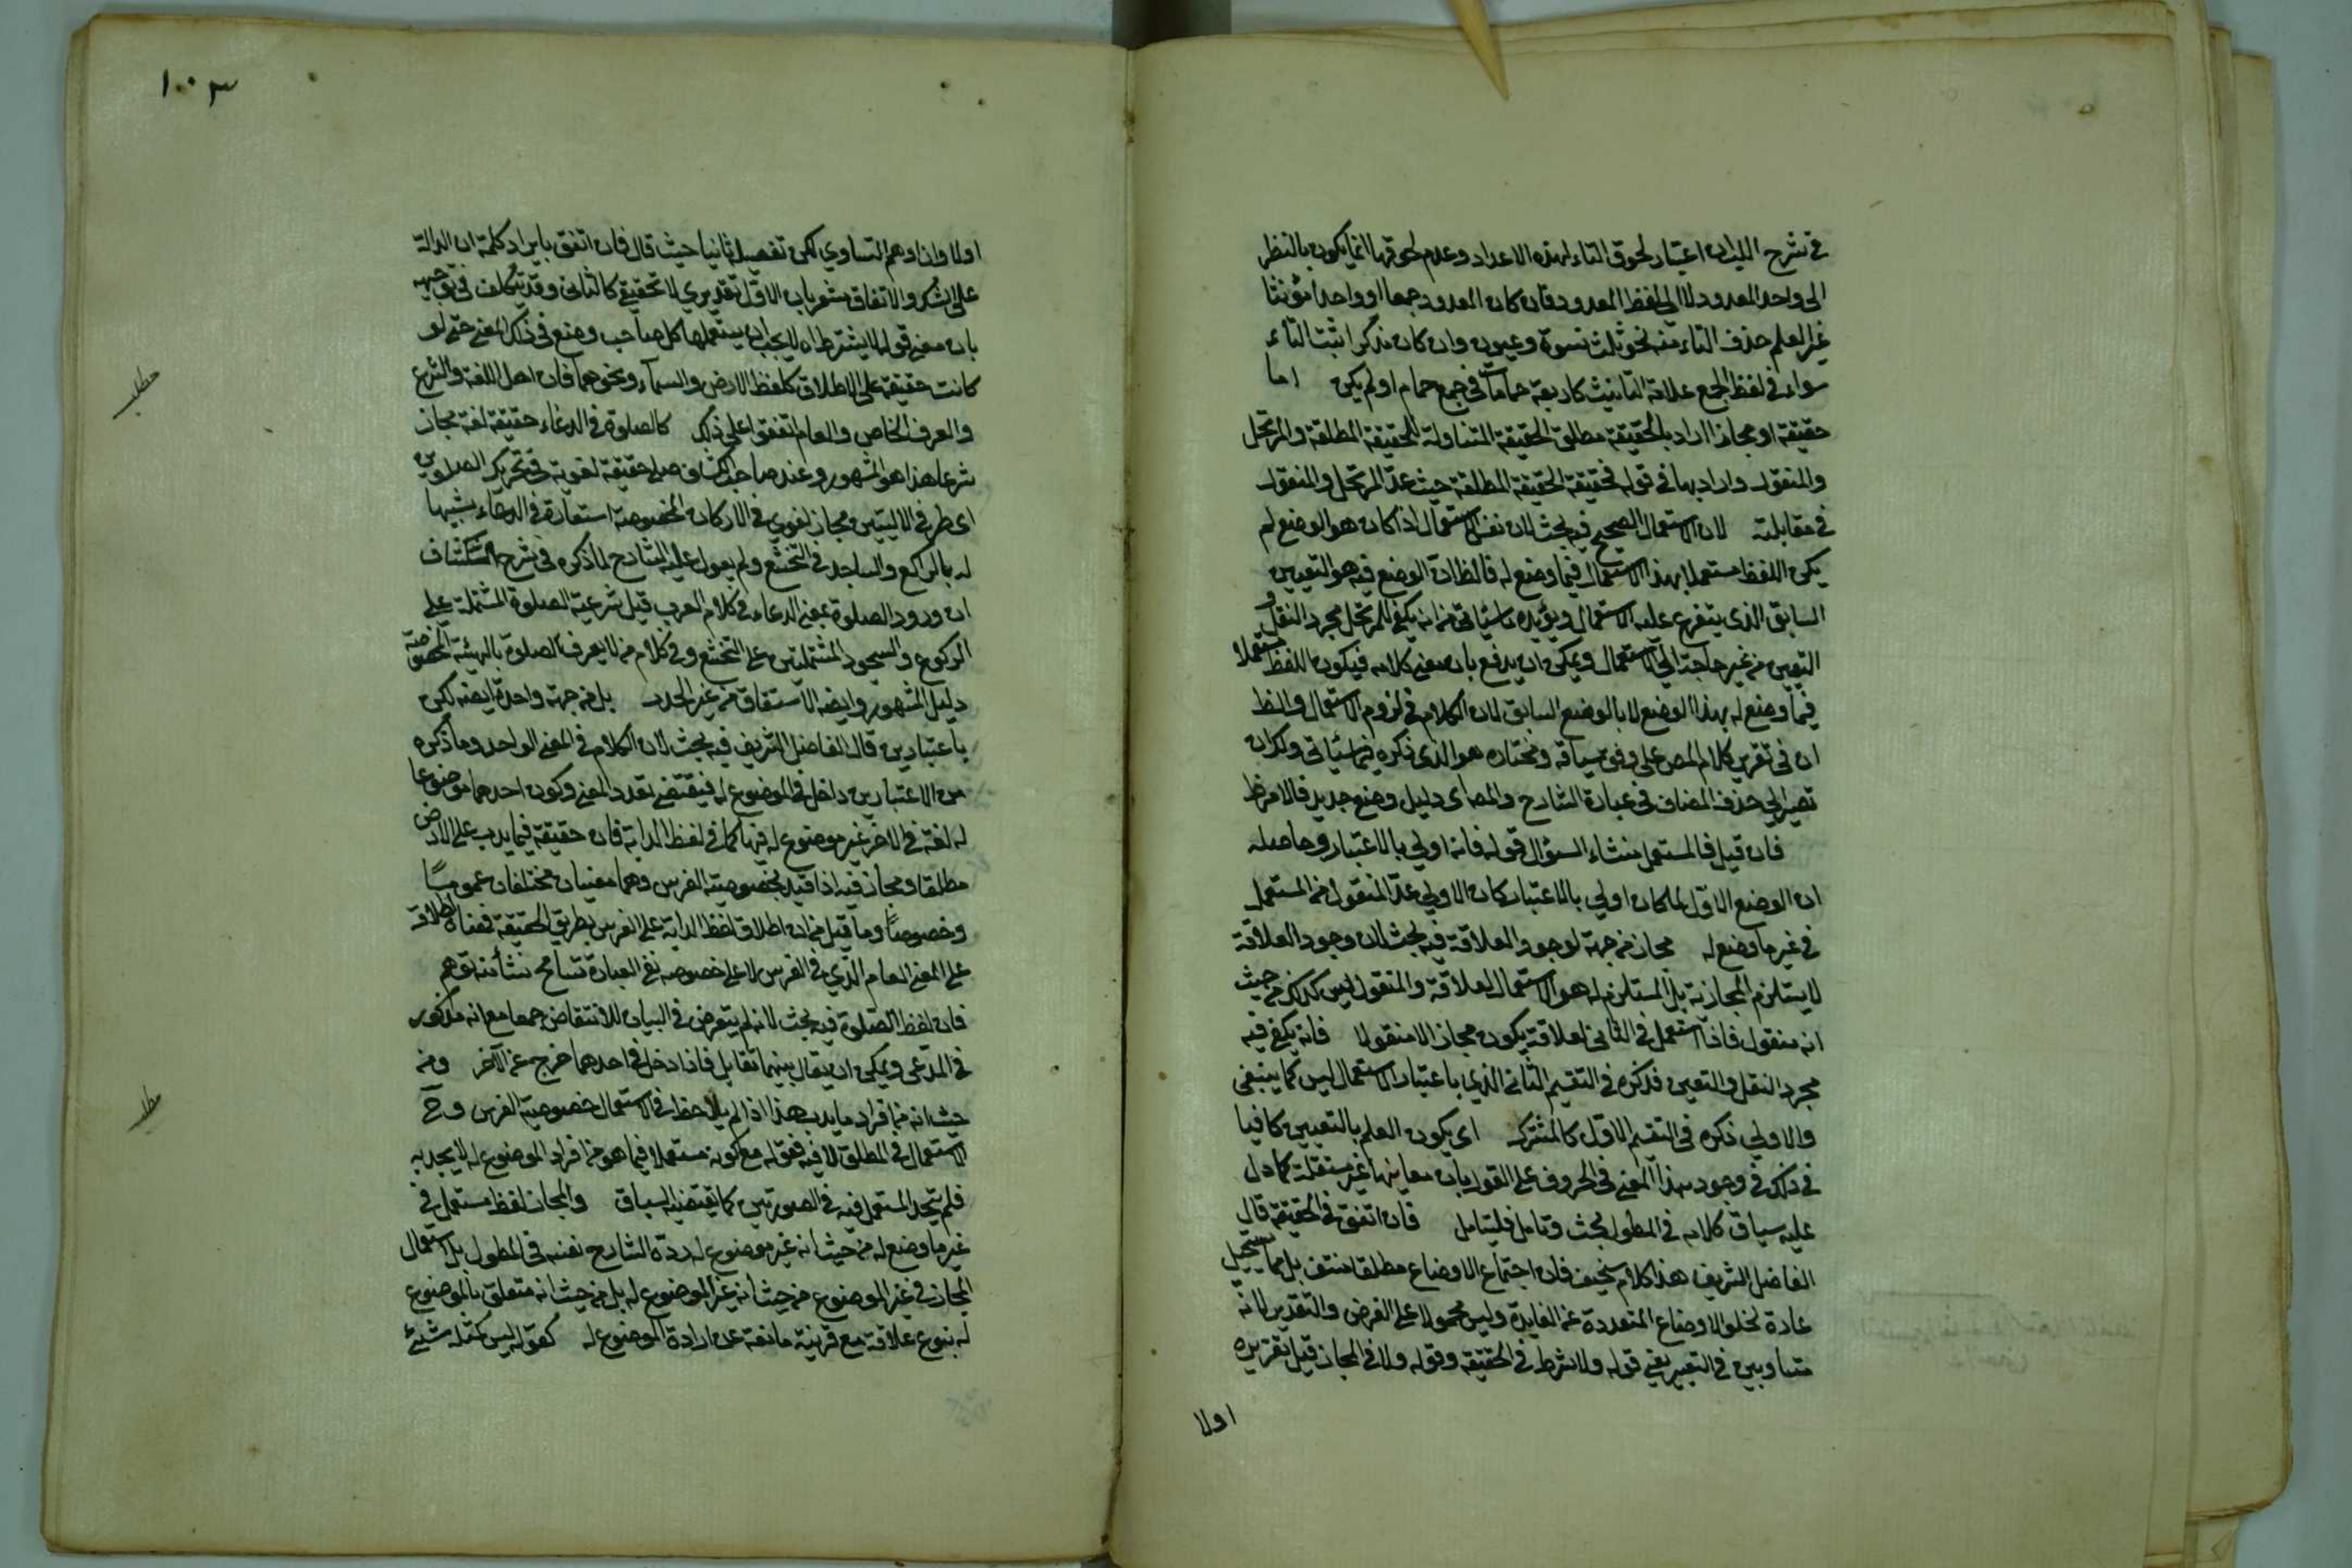 في شرح اللباب اعتبار لحوق التاء لهذه الاعداد وعدم لحوقها انما يكون بالنظر
الى واحد المعدود لا الى لفظ المعدود فان كان المعدود جمعا او واحدا مؤنثا
غير العلم حذف التاء منه نحو ثلث نسوة وعيون وان كان مذكرا اثبت التاء
سواء في لفظ الجمع علامة التانيث كاربعة حمامات في جمع حمام او لم يكن اما
حقيقة او مجاز اراد بالحقيقة مطلق الحقيقة المتناولة للحقيقة المطلقة والمرتجل
والمنقول واراد بها في قوله فحقيقة الحقيقة المطلقة حيث عد المرتجل والمنقول
في مقابلته لان الاستعمال الصحيح فيه بحث لان نفس الاستعمال اذا كان هو الوضع لم
يكن اللفظ مستعملا بهذا الاستعمال فيما وضع له فالظ ان الوضع فيه هو التعيين
السابق الذي يتفرع عليه الاستعمال ويؤيده ما سيأتي من انه يكفي للمرتجل مجرد النقل و
التعيين من غير حاجة الى الاستعمال ويمكن ان يدفع بان معنى كلامه فيكون اللفظ مستعملا
فيما وضع له بهذا الوضع لا بالوضع السابق لان الكلام في لزوم الاستعمال والظ
ان في تقرير كلام المص على وفق سياقه ومختاره هو الذي ذكره فيما سيأتي ولك ان
تصير الى حذف المضاف في عبارة الشارح والمص اى دليل وضع جديد فالامر ظ
فان قيل فالمستعمل منشاء السؤال قوله فانه اولي بالاعتبار وحاصله
ان الوضع الاول لما كان اولي بالاعتبار كان الاولي عد المنقول من المستعمل
في غير ما وضع له مجاز من جهة لوجود العلاقة فيه بحث لان وجود العلاقة
لا يستلزم المجازية بل المستلزم له هو الاستعمال لعلاقة والمنقول ليس كذلك من حيث
انه منقول فاذا استعمل في الثاني لعلاقة يكون مجازا لا منقولا فانه يكفي فيه
مجرد النقل والتعيين فذكره في التقسيم الثاني الذي باعتبار الاستعمال ليس كما ينبغي
والاولي ذكره في التقسيم الاول كالمشترك اى يكون العلم بالتعيين كافيا
في ذلك في وجود هذا المعنى في الحروف على القول بان معانيها غير مستقلة كما دل
عليه سياق كلامه في المطول بحث وتامل فليتامل فان اتفق في الحقيقة قال
الفاضل الشريف هذا كلام سخيف فان اجتماع الاوضاع مطلقا منتف بل مما يستحيل
عادة لخلو الاوضاع المتعددة عن الفايدة وليس محمولا على الفرض والتقدير لانه
متساويين في التعبير يعني قوله ولا شرط في الحقيقة وقوله ولا في المجاز قيل تقريره
اولا
١٠٠٣
اولا وان اوهم التساوي لكن تفصيله ثانيا حيث قال فان اتفق بايراد كلمة ان الدالة
على الشك والاتفاق مشعر بان الاول تقديري لا تحقيقي كالثاني وقد يتكلف في توجيهه
بان معنى قوله لا يشترط اه لا يجب ان يستعملها كل صاحب وضع في ذلك المعنى حتى لو
كانت حقيقة على الاطلاق كلفظ الارض والسماء ونحوهما فان اهل اللغة والشرع
والعرف الخاص والعام اتفقوا على ذلك كالصلوة في الدعاء حقيقة لغة مجاز
شرعا هذا هو المشهور وعند صاحب الكشاف صلى حقيقة لغوية في تحريك الصلوين
اى طرفي الاليتين مجاز لغوي في الاركان المخصوصة استعارة في الدعاء تشبيها
له بالراكع والساجد في التخشع ولم يعول عليه الشارح لما ذكره في شرح الكشاف
ان ورود الصلوة بمعنى الدعاء في كلام العرب قبل شرعية الصلوة المشتملة على
الركوع والسجود المشتملين على التخشع وفي كلام من لا يعرف الصلوة بالهيئة المخصوصة
دليل المشهور وايضا الاشتقاق من غير الحدث بل من جهة واحدة ايضه لكن
باعتبارين قال الفاضل الشريف فيه بحث لان الكلام في المعنى الواحد وما ذكره
من الاعتبارين داخل في الموضوع له فيقتضي تعدد المعنى وكون احدهما موضوعا
له لغة والاخر غير موضوع له فيها كما في لفظ الدابة فان حقيقة فيما يدب على الارض
مطلقا ومجاز فيه اذا قيد بخصوصية الفرس وهما معنيان مختلفان عموما
وخصوصا وما قيل من ان اطلاق لفظ الدابة على الفرس بطريق الحقيقة فمعناه اطلاقه
على المعنى العام الذي في الفرس لا على خصوصه ففي العبارة تسامح نشأ منه توهم
فان لفظ الصلوة فيه بحث لانه لم يتعرض في البيان للانتقاض جمعا مع انه مذكور
في المدعى ويمكن ان يقال بينهما تقابل فاذا دخل في احدهما خرج عن الآخر ومن
حيث انه من افراد ما يدب هذا اذا لم يلاحظ في الاستعمال خصوصية الفرس وح
الاستعمال في المطلق لا فيه فقوله مع كونه مستعملا فيما هو من افراد الموضوع له لا يجد به
فلم يتحد المستعمل فيه في الصورتين كما يقتضيه السياق والمجاز لفظ مستعمل في
غير ما وضع له من حيث انه غير موضوع له رده الشارح نفسه في المطول بل استعمال
المجاز في غير الموضوع من حيث انه غير الموضوع له بل من حيث انه متعلق بالموضوع
له بنوع علاقة مع قرينة مانعة عن ارادة الموضوع له كقوله ليس كمثله شيئ
مطلب
مط